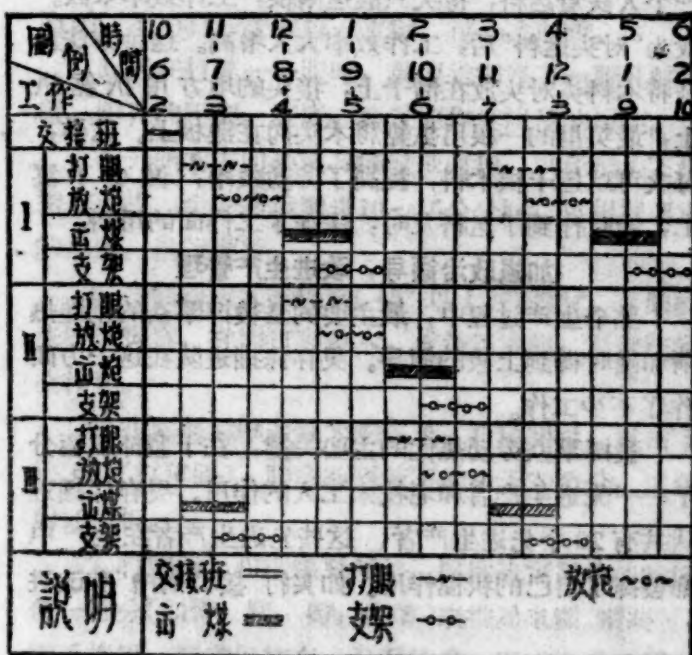 圖例 時間 10 11 12 1 2 3 4 5 6
6 7 8 9 10 11 12 1 2
工作 2 3 4 5 6 7 8 9 10
交接班
I 打眼
放炮
出煤
支架
II 打眼
放炮
出炮
支架
III 打眼
放炮
出煤
支架
説明 交接班 打眼 放炮
出煤 支架